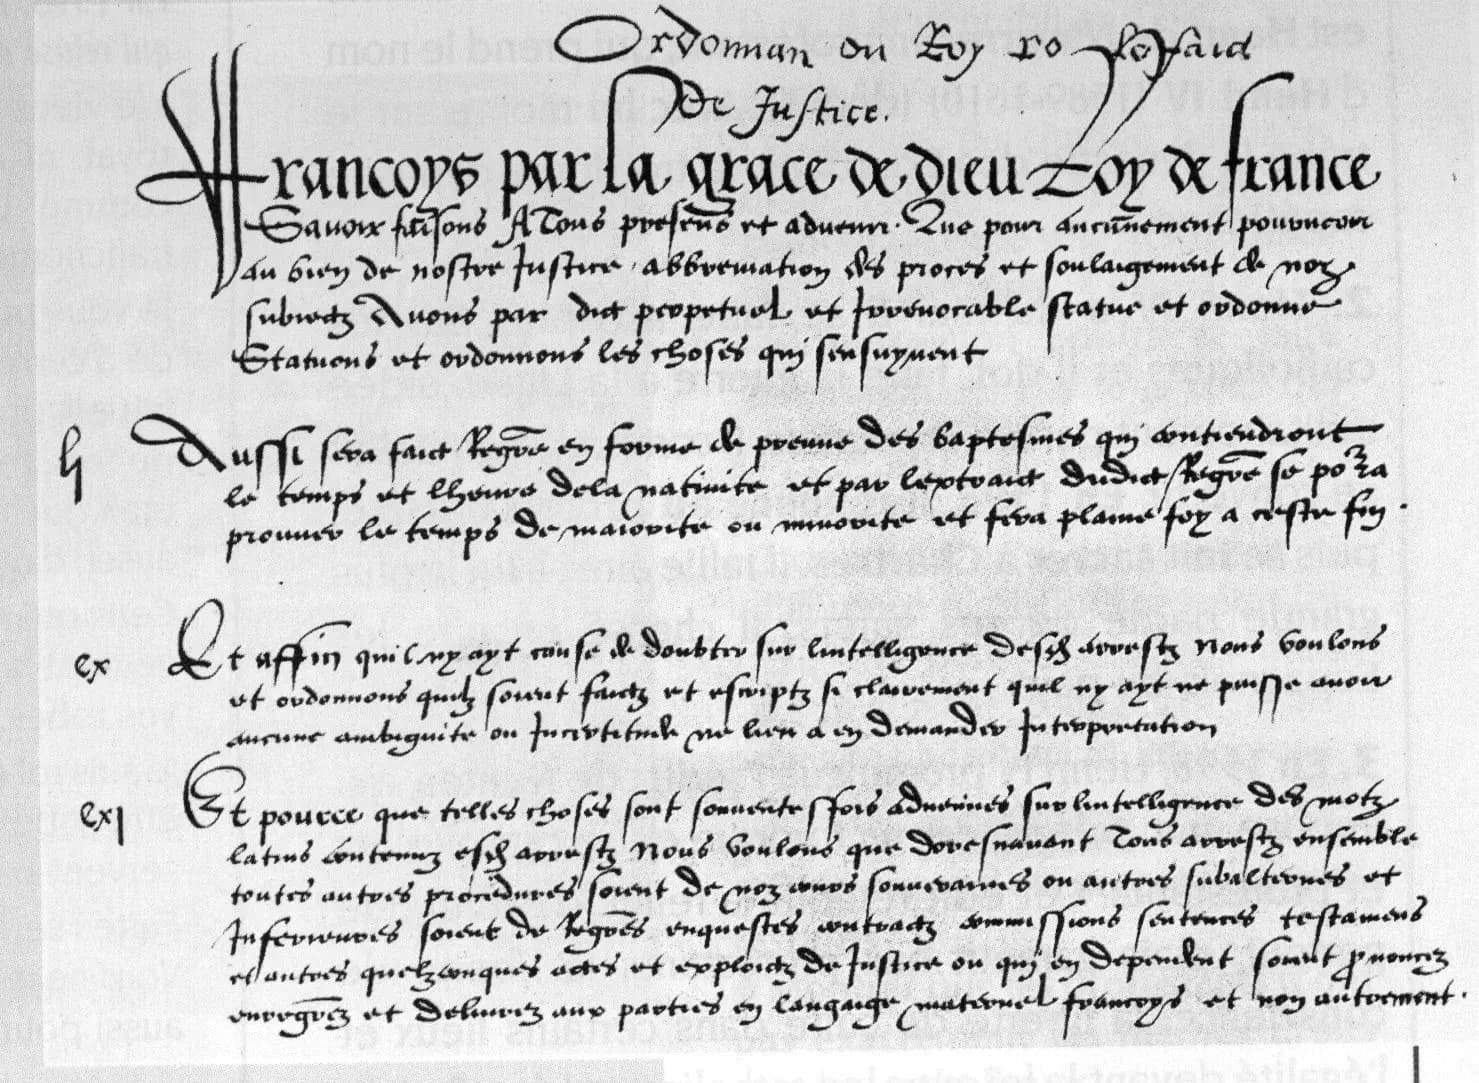 Ordonnan du Roy
de Justice.
francoys par la grace de dieu Roy de france
Savoir faisons A Tous presens et advenir. Que pour aucunnement pourveoir
au bien de nostre Justice abbreviation des proces et soulaigement de noz
subiectz Avons par dict perpetuel et Irrevocable statue et ordonne
Statuons et ordonnons les choses qui sensuyvent
Aussi sera faict Regre en forme de preuve des baptesmes qui contiendront
le temps et lheure dela nativite et par lextraict dudict Regre se pora
prouver le temps de maiorite ou minorite et fera plaine foy a ceste fin.
cx Et affin quil ny ayt cause de doubter sur lintelligence desd arrestz Nous voulons
et ordonnons quilz soient faictz et escriptz si clairement quil ny ayt ne puisse avoir
aucune ambiguite ou Incertitude ne lieu a en demander Interpretation
cxj Et pource que telles choses sont souventesfois advenues sur lintelligence des motz
latins contenuz esd arrestz Nous voulons que doresnavant Tous arrestz ensemble
toutes autres procedures soient de noz cours souveraines ou autres subalternes et
Inferieures soient de Regres enquestes contractz commissions sentences testamens
et autres quelzconques actes et exploictz de Justice ou qui en dependent soient pronocez
enregrez et delivrez aux parties en langaige maternel francoys et non autrement.